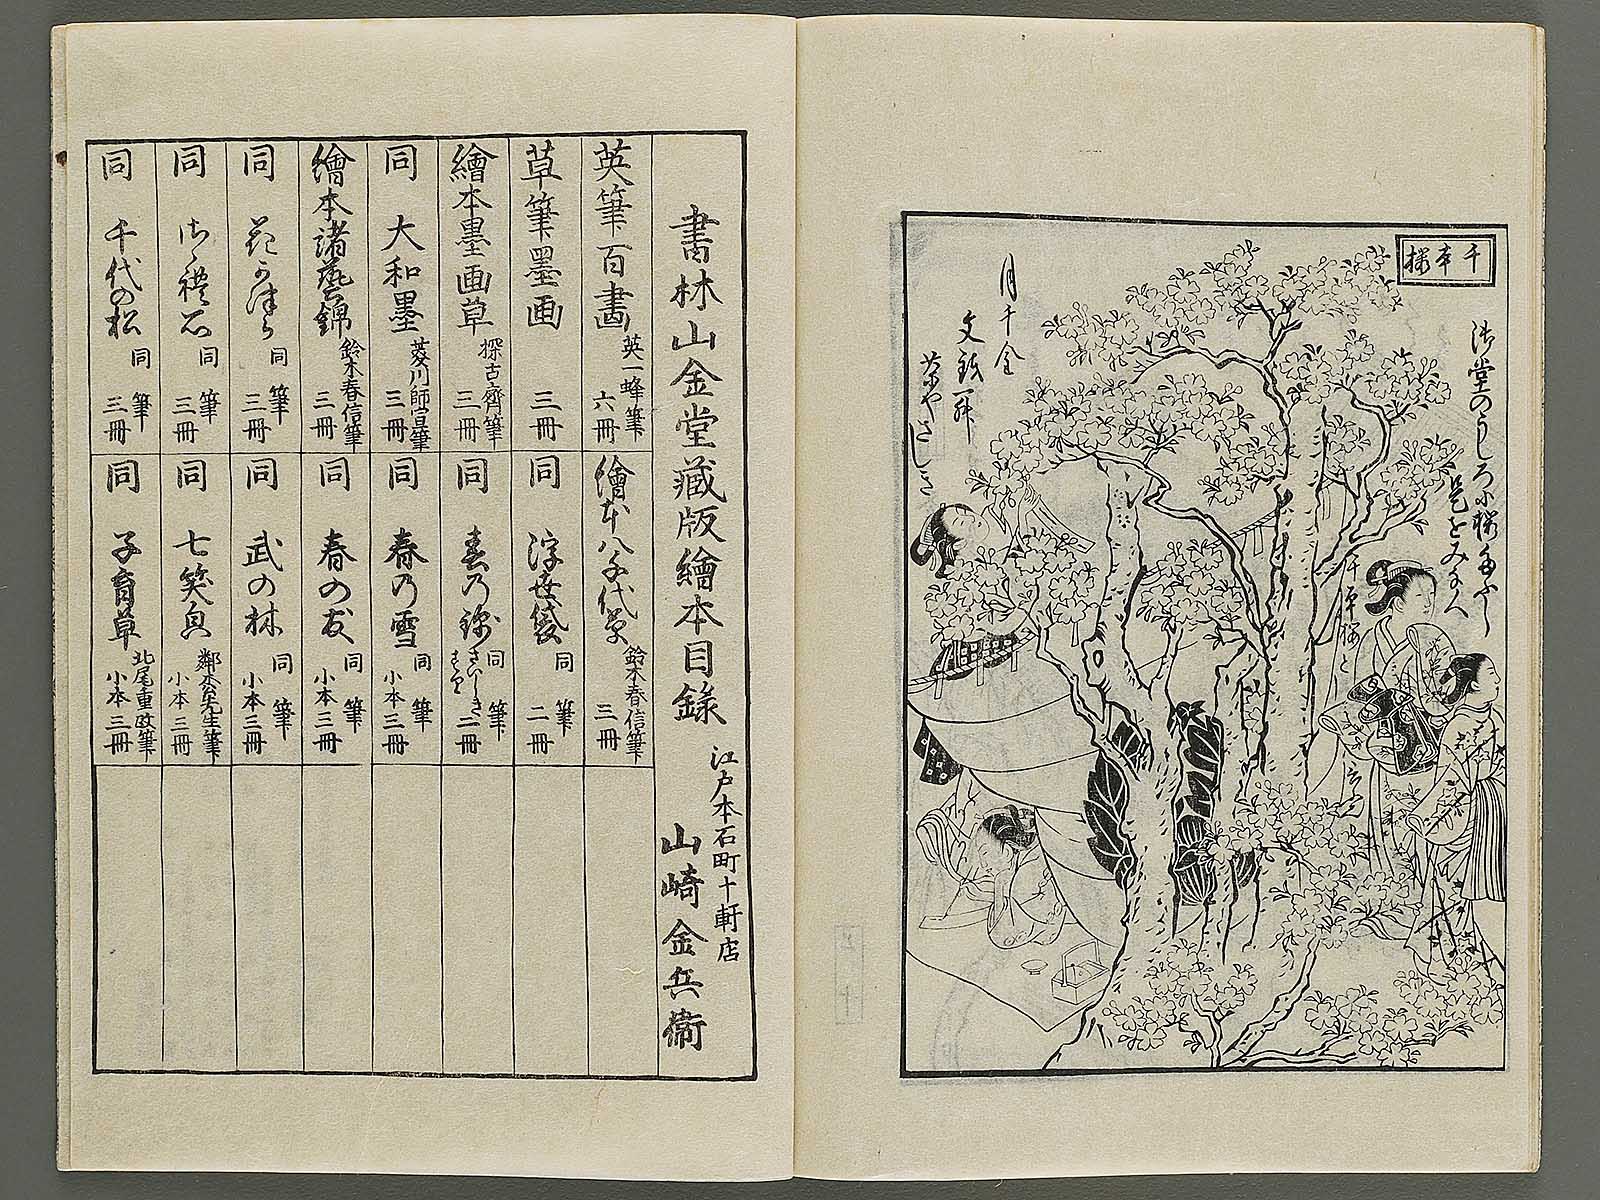 千本桜
御堂のうしろに桜多し
是をみな人
千本桜と
いふ
月千金
文鉄一升
茶やさしき
書林山金堂藏版繪本目錄
江戸本石町十軒店
山崎金兵衛
英筆百畫 英一蜂筆 六冊
草筆墨画 三冊
繪本墨画草 探古齋筆 三冊
同 大和墨 菱川師宣筆 三冊
繪本諸藝錦 鈴木春信筆 三冊
同 花かつら 同筆 三冊
同 さゝれ石 同筆 三冊
同 千代の松 同筆 三冊
繪本八千代草 鈴木春信筆 三冊
同 浮世袋 同筆 二冊
同 春乃錦 同筆 さいしきすり 二冊
同 春乃雪 同筆 小本三冊
同 春の友 同筆 小本三冊
同 武の林 同筆 小本三冊
同 七笑 先生筆 小本三冊
同 子育草 北尾重政筆 小本三冊